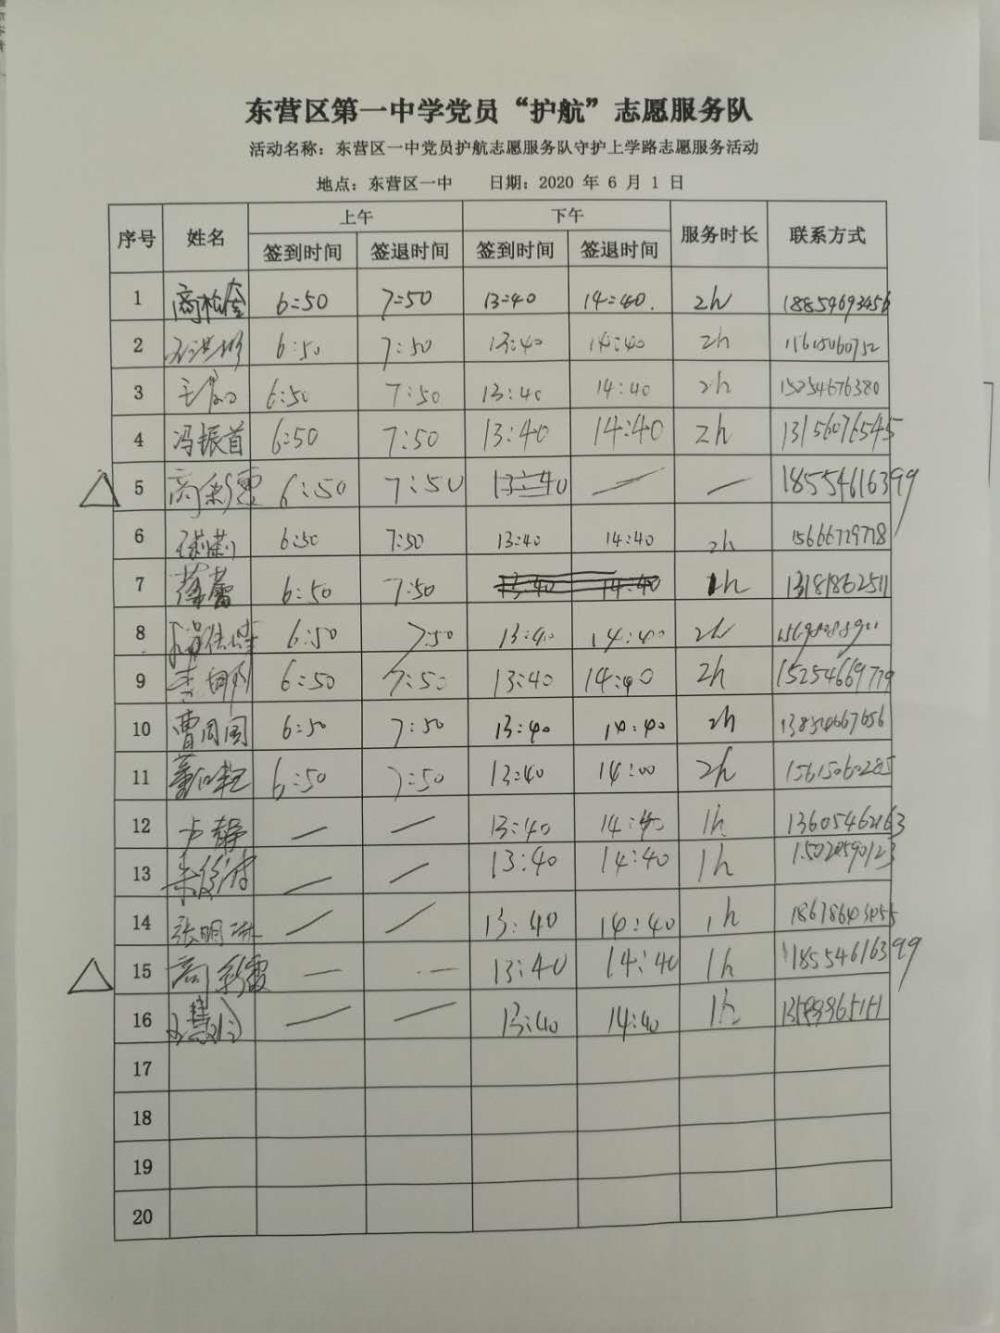 东营区第一中学党员“护航”志愿服务队
活动名称：东营区一中党员护航志愿服务队守护上学路志愿服务活动
地点：东营区一中 日期：2020 年 6 月 1 日
序号 姓名 上午 下午 服务时长 联系方式
签到时间 签退时间 签到时间 签退时间
1 6:50 7:50 13:40 14:40. 2h 18854693456
2 6:50 7:50 13:40 14:40 2h 15615060752
3 6:50 7:50 13:40 14:40 2h 15254676380
4 冯振首 6:50 7:50 13:40 14:40 2h 13156076545
△ 5 高彩霞 6:50 7:50 13:40 — — 18554616399
6 6:50 7:50 13:40 14:40 2h 15666729778
7 薄蕾 6:50 7:50 13:40 14:40 1h 13181862511
8 6:50 7:50 13:40 14:40 2h
9 6:50 7:50 13:40 14:40 2h 15254669779
10 曹周周 6:50 7:50 13:40 14:40 2h 13854667656
11 6:50 7:50 13:40 14:00 2h 15615060285
12 卢静 — — 13:40 14:40 1h 13605462163
13 — — 13:40 14:40 1h
14 张明琳 — — 13:40 14:40 1h
△ 15 高彩霞 — — 13:40 14:40 1h 18554616399
16 — — 13:40 14:40 1h
17
18
19
20